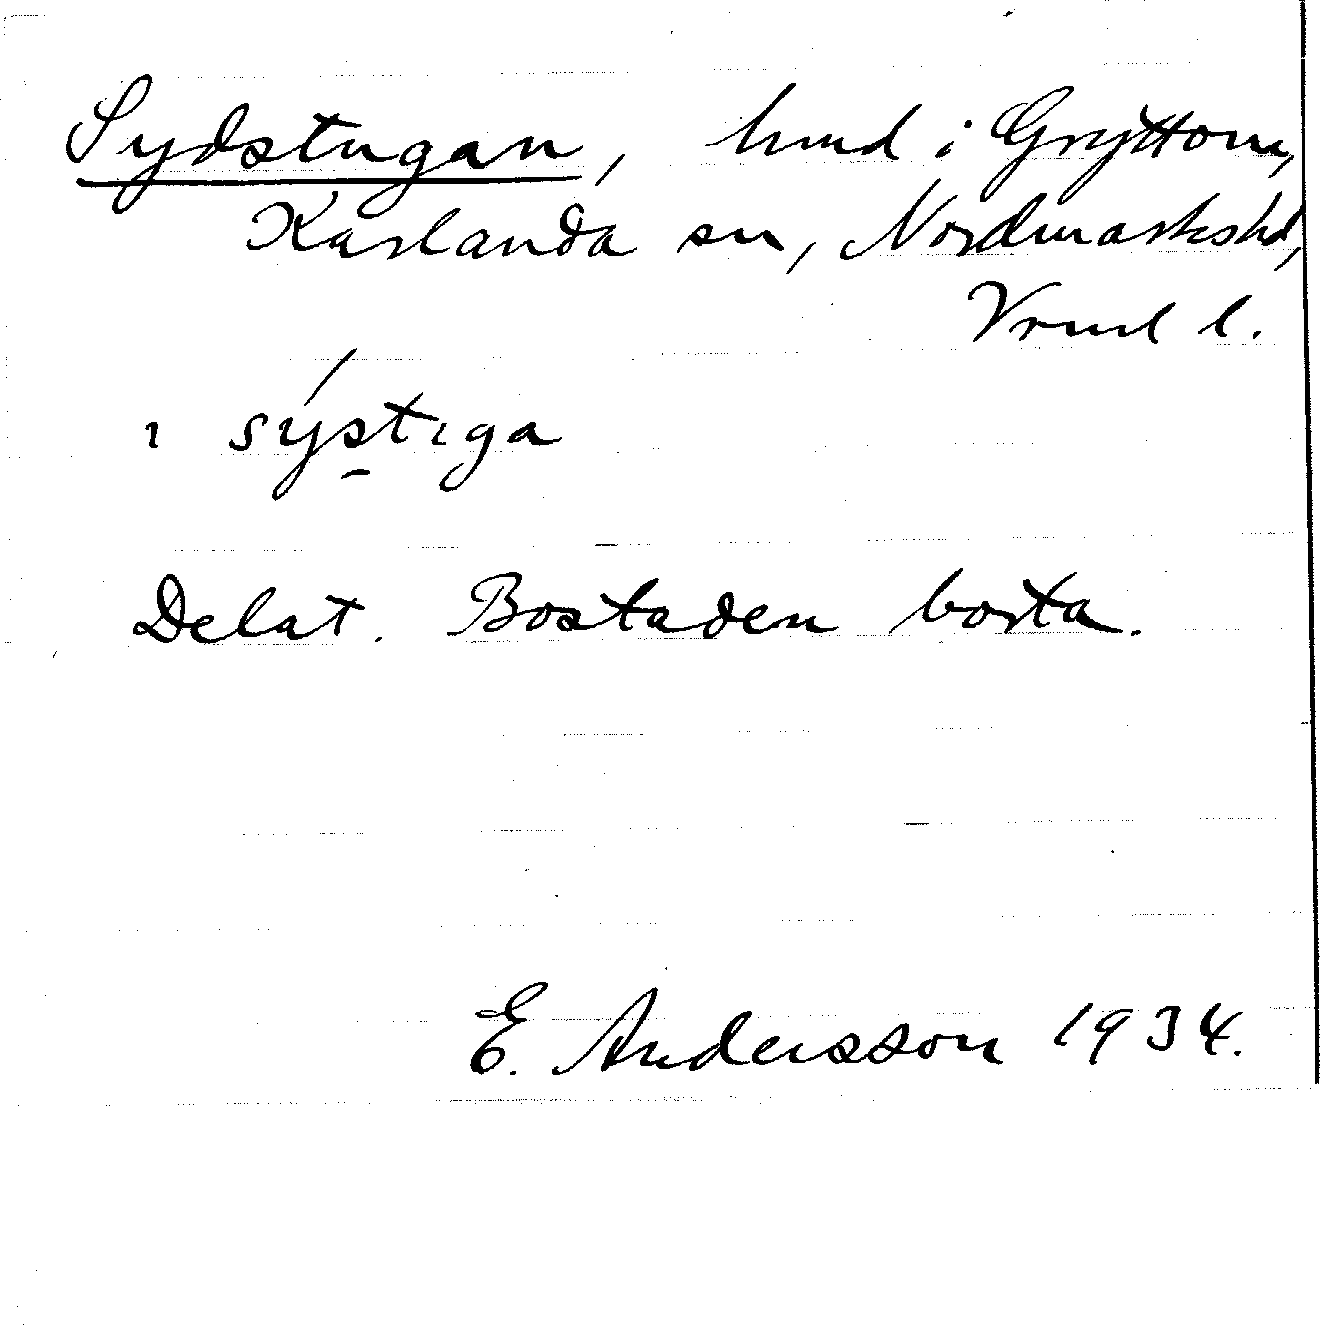 Sydstugan, hmd i Gryttom,
Karlanda sn, Nordmarkshd,
Vrml l.
ı sýstıga
Delat. Bostaden borta.
E. Andersson 1934.